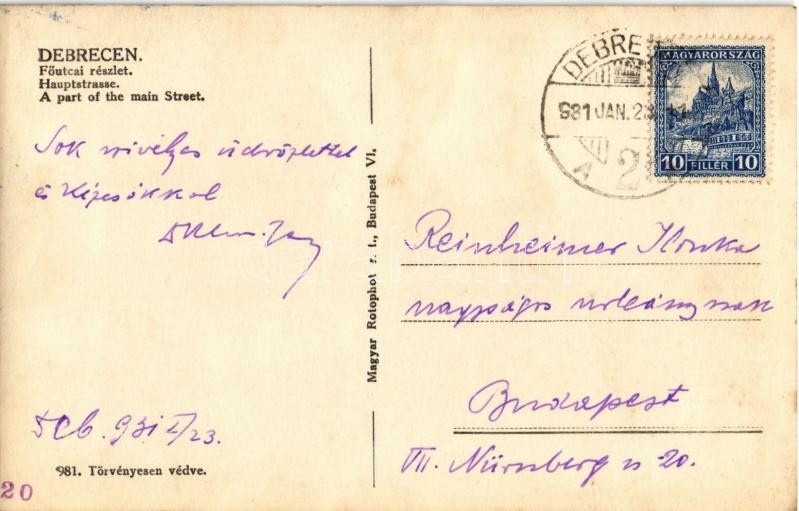 DEBRECEN.
Főutcai részlet.
Hauptstrasse.
A part of the main Street.
Sok szívélyes üdvözlettel
és kézcsókkal
Deb. 931 I/23.
981. Törvényesen védve.
20
Magyar Rotophot r. t., Budapest VI.
DEBRE
931 JAN. 23
A 2
MAGYARORSZÁG
10 FILLÉR 10
Reinheimer Ilonka
nagyságos urleánynak
Budapest
VII. Nürnberg u 20.
darabanth